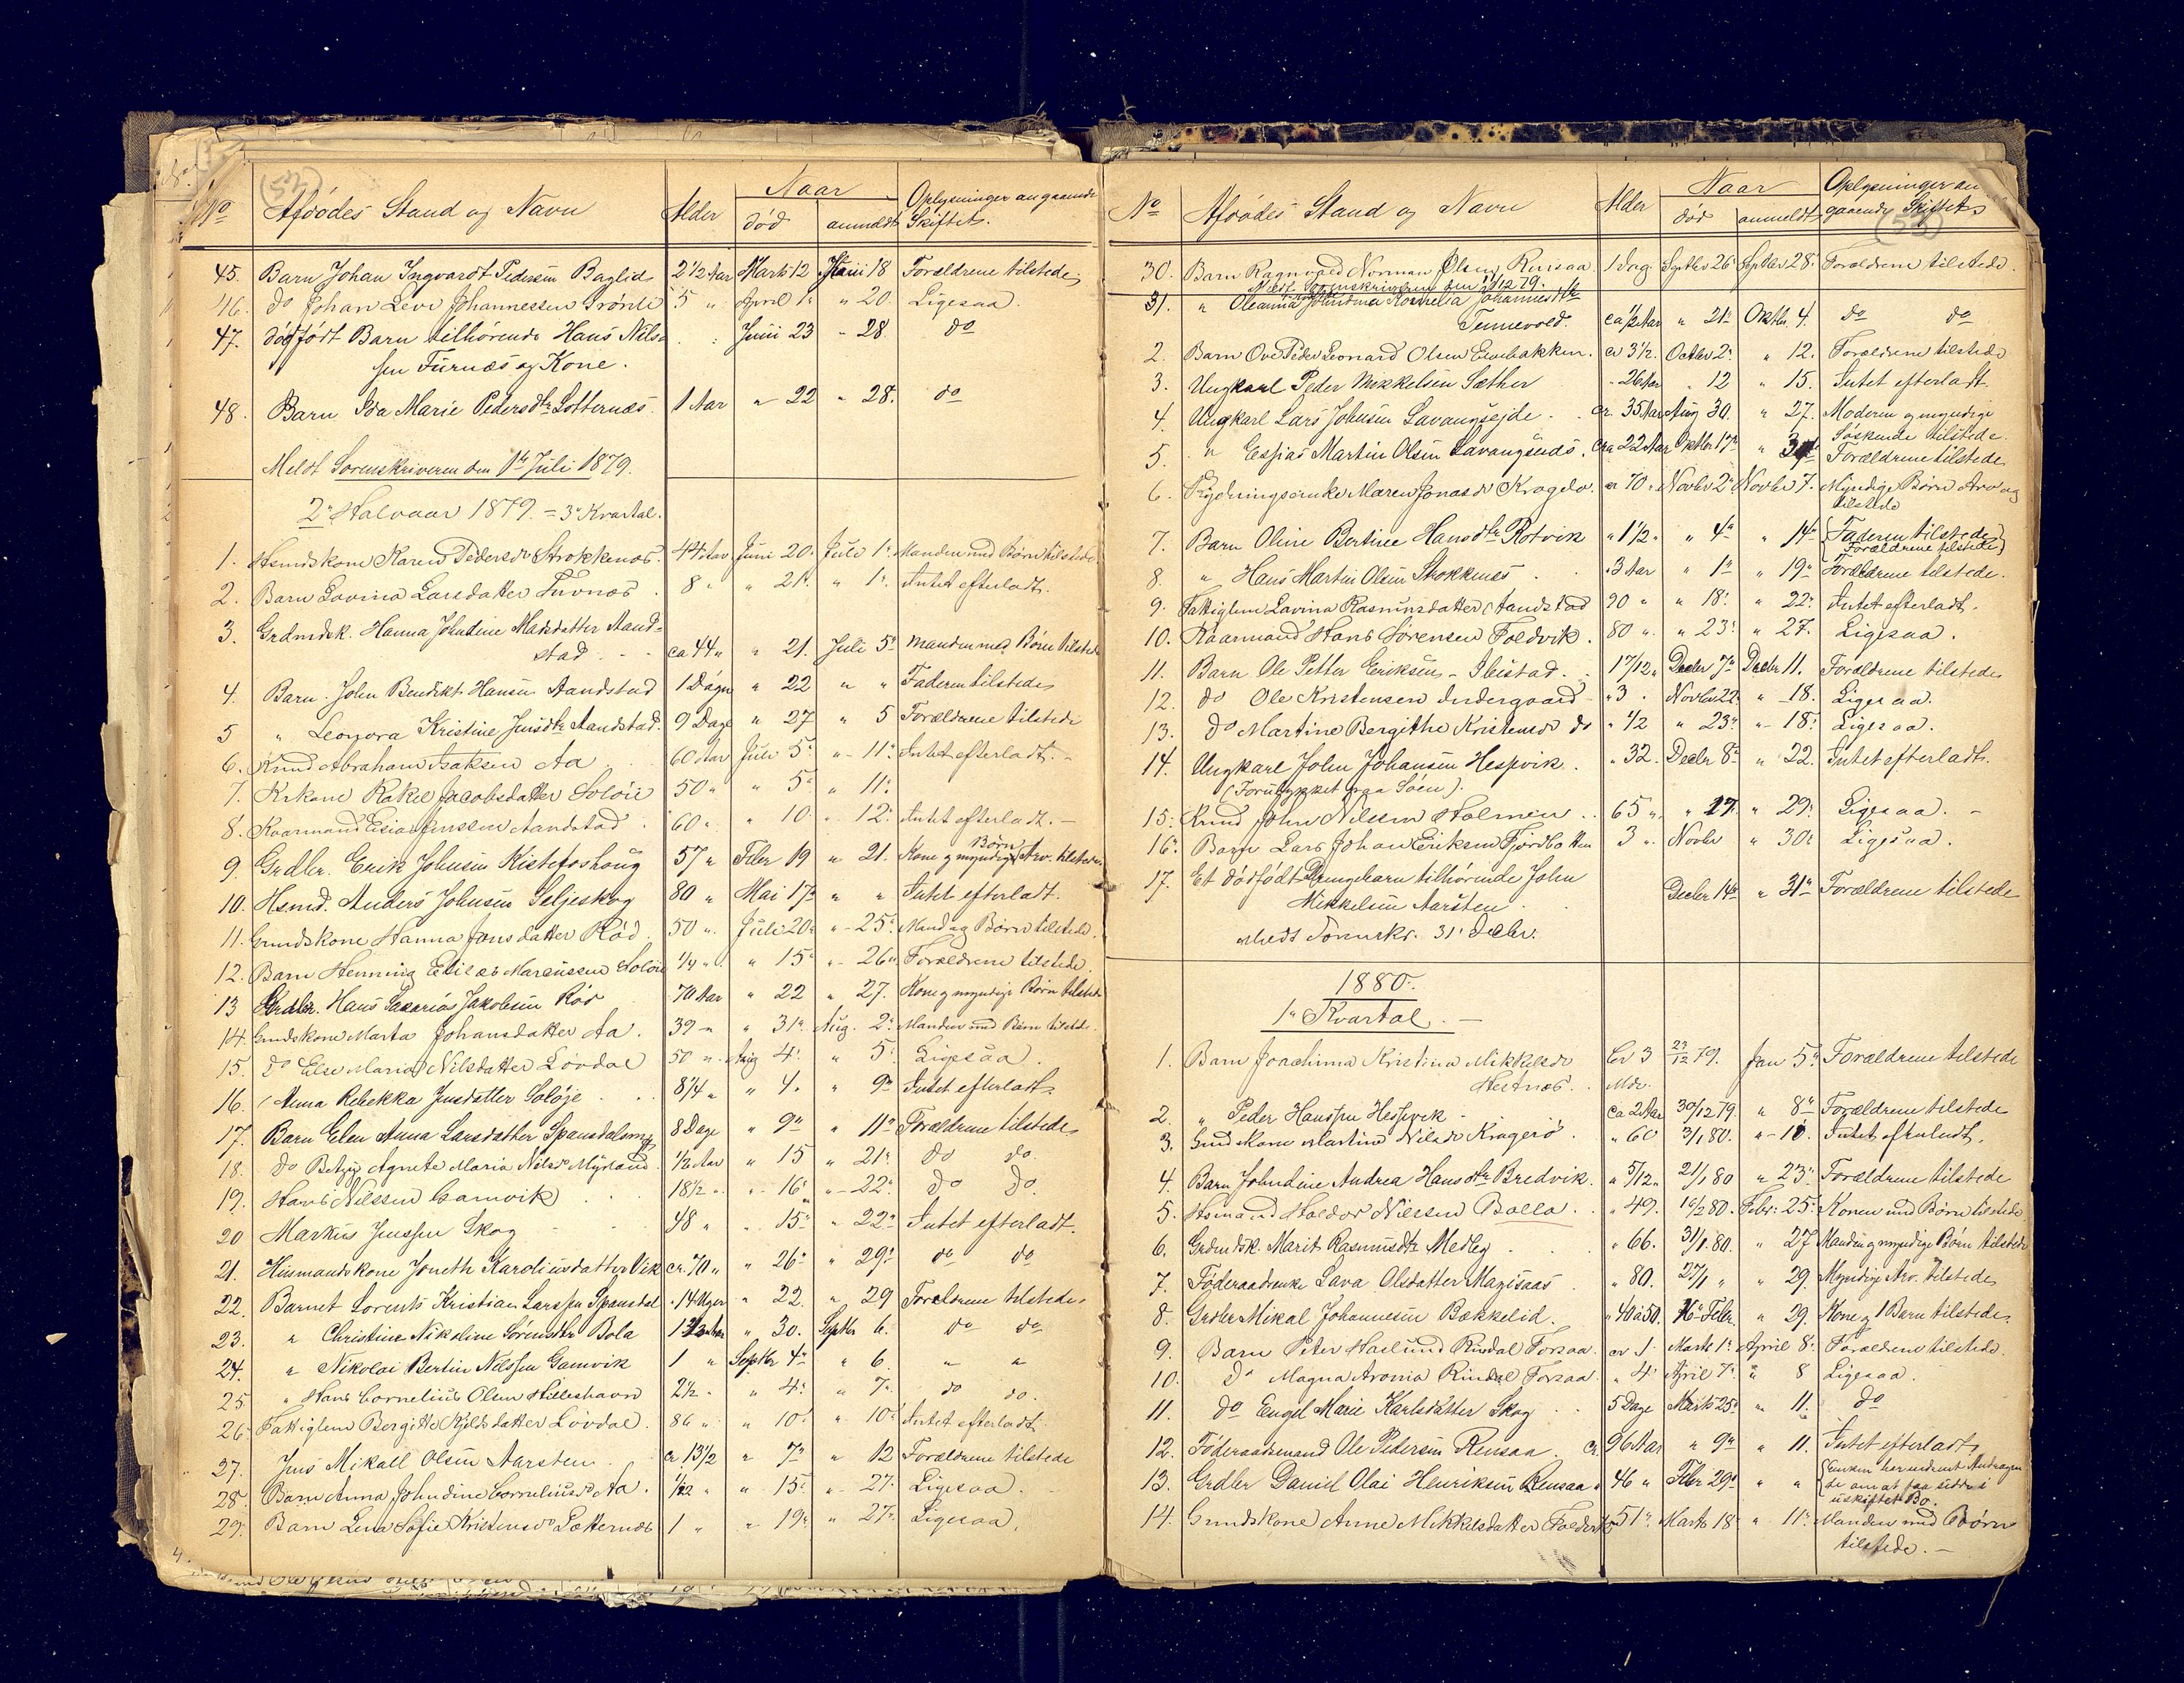 No Afdödes Stand og Navn Alder Naar död anmeldt Oplysninger angaaende Skiftet.
(53)
45. Barn Johan Ingvardt Pedersen Baglid 2 1/2 Aar Marts 12 Juni 18 Forældrene tilstede
46. do Johan Levi Johannessen Grönli 5 " April 1 " 20. Ligesaa.
47. dödfödt Barn tilhörende Hans Nils- Juni 23 " 28. do
sen Furnæs og Kone.
48. Barn Ida Marie Pedersdtr Sotternæs. 1 Aar " 22 " 28. do
Meldt Sorenskriveren den 1ste Juli 1879.
2det Halvaar 1879. = 3die Kvartal.
1. Hsmdskone Karen Pedersdr Strokkenæs. 44 Aar Juni 20. Juli 1. Manden med Börn tilstede
2. Barn Lovina Larsdatter Furnæs. 8 " " 21. " 1. Intet efterladt.
3. Grdmdsk. Hanna Johndine Madsdatter Aand-
stad ca 44 " " 21. Juli 5. Manden med Börn tilstede
4. Barn. John Bendikt Hansen Aandstad 1 Dögn " 22 " " Faderen tilstede
5 " Leonora Kristine Jensdtr Aandstad. 9 Dage " 27 " 5 Forældrene tilstede
6. Kmd Abraham Isaksen Aa 60 Aar Juli 5. " 11. Intet efterladt.
7. Krkone Rakel Jacobsdatter Solöie 50 " " 5 " 11.
8. Kaarmand Esias Jenssen Aandstad 60 " " 10. " 12. Intet efterladt.
9. Grdbr. Erik Johnsen Kistefoshaug 57 " Febr 19 " 21. Kone og myndige Börn Arv. tilstede
10. Hsmd. Anders Johnsen Seljeskog 80 " Mai 17 " " Intet efterladt.
11. Gmdskone Hanna Jonsdatter Röd. 50 " Juli 20 " 25. Mand og Börn tilstede.
12. Barn Henning Edias Marcussen Solöie 1/4 " " 15 " 26. Forældrene tilstede.
13 Grdbr. Hans Sakarias Jakobsen Röd 70 Aar " 22 " 27. Kone og myndige Börn tilstede
14. Gmdskone Marta Johansdatter Aa. 39 " " 31. Aug. 2. Manden med Börn tilstede.
15. do Else Maria Nilsdatter Lövdal 50 " Aug 4. " 5. Ligesaa.
16. Anna Rebekka Jensdatter Solöje 8 1/4 " " 4. " 9. Intet efterladt
17. Barn Elen Anna Larsdatter Spansdalsmyr 8 Dage " 9 " 11. Forældrene tilstede
18. do Betzy Agnete Maria Nilsdr Myrland 1/2 Aar " 15 " 21. do do.
19. Hans Nilssen Gamvik 18 1/2 " " 16. " 22. do do.
20 Markus Jenssen Skog 48 " " 15. " 22. Intet efterladt.
21. Husmandskone Joneth Karoliusdatter Vik cr. 70 " " 26. " 29. do do
22. Barnet Lorents Kristian Larssen Spansdal 14 Uger " 22. " 29 Forældrene tilstede.
23. " Christine Nikoline Sörensdtr Bola " 30. Septbr 6. do do
24. " Nikolai Bertin Nilssen Gamvik 1 " Septbr 4. " 6. " "
25 " Hans Cornelius Olsen Hilleshavn 2 1/2 " " 4. " 7. do do.
26. Fattiglem Bergitte Kjeldsdatter Lövdal. 86 " " 10. " 10. Intet efterladt
27. Jens Mikall Olsen Aarsten cr 13 1/2 " 7. " 12 Forældrene tilstede
28. Barn Anna Johndine Corneliusdr Aa. " 15. " 27. Ligesaa.
29. Barn Lena Sofie Kristensdr Sætternæs 1 " " 19. " 27. Ligesaa.
No Afdödes Stand og Navn Alder Naar död anmeldt Oplysninger an
gaaende Skiftet
(53)
30. Barn Ragnvald Norman Olsen Rensaa 1 Dag. Septbr 26 Septbr 28. Forældrene tilstede.
Meldt Sorenskriveren den 1/10 79.
31. " Oleanna Johndine Kornelia Johannesdtr
Tennevold. ca 1/2 Aar " 21. Oktbr. 4. do do
2. Barn Ove Peder Leonard Olsen Elvebakken. cr 3 1/2. Octbr 2. " 12. Forældrene tilstede
3. Ungkarl Peder Mikkelsen Sæther " 26 Aar " 12 " 15. Intet efterladt.
4. Ungkarl Lars Johnsen Lavangsejde. cr. 35 Aar Aug 30. " 27. Moderen og myndige
Söskende tilstede.
5. " Esjias Martin Olsen Lavangsnæs. cra 22 Aar Oktbr 17 " Forældrene tilstede
6. Rydningsenke Maren Jonasdr Krogelv. cr 70 " Novbr 2 Novbr 7. Myndige Börn Arv og
tilstede
7. Barn Oline Bertine Hansdtr Rotvik " 1 1/2 " " 4 " 14 Faderen tilstede
(Forældrene tilstede)
8. " Hans Martin Olsen Strokkenes " 3 Aar " 1 " 19 Forældrene tilstede.
9. Fattiglem Lavina Rasmusdatter Aandstad 90 " " 18. " 22. Intet efterladt.
10. Kaarmand Hans Sörensen Foldvik. 80 " " 23. " 27. Ligesaa.
11. Barn Ole Petter Eriksen - Ibestad. 1 7/12 " Decbr 7 Decbr 11. Forældrene tilstede
12. do Ole Kristensen Indergaard " 3 " Novbr 22. " 18. Ligesaa.
13. do Martine Bergithe Kristensdr do " 1/2 " 23. " 18. Ligesaa.
14. Ungkarl John Johansen Hespvik. " 32. Decbr 8. " 22. Intet efterladt.
(Forulykket paa Söen).
15. Kmd John Nilssen Holmen 65 " " 27. " 29. Ligesaa.
16. Barn Lars Johan Eriksen Fjordbotten 3 " Novbr " 30. Ligesaa.
17. Et dödfödt Drengebarn tilhörende John
Mikkelsen Aarsten Decbr 14 " 31. Forældrene tilstede
Meldt Sorenskr. 31. Decbr.
1880.
1ste Kvartal.
1. Barn Joachima Kristina Mikkelsdr Cr 3 29/12 79. Jan 5. Forældrene tilstede
Hestnæs. Mdr.
2. " Peder Hanssen Hespevik ca 2 Aar 30/12 79. " 8. Forældrene tilstede
3. Gmdskone Martine Nilsdr Kragerö. " 60 3/1 80. " 10. Intet efterladt.
4. Barn Johndine Andrea Hansdtr Bredvik. " 5/12 " 21/1 80 " 23. Forældrene tilstede
5. Hsmand Haldor Nilssen Bolla. " 49. 16/2 80. Febr. 25. Konen med Börn tilstede
6. Grdmdsk. Marit Rasmusdtr Medley " 66. 31/1 80. " 27 Manden og myndige Börn tilstede
7. Föderaadsenke Lava Olsdatter Magisaas " 80. 27/1 " " 29. Myndige Arv. tilstede
8. Grdbr Mikal Johannesen Bækkelid. " 40 a 50. 16. Febr. " 29. Kone og 1 Barn tilstede
9. Barn Peter Haslund Rindal Forsaa. cr 1. Marts 1. April 8. Forældrene tilstede.
10. do Magna Aronia Rindal Forsaa. " 4. April 7. " 8 Ligesaa.
11. do Engel Marie Karlsdatter Skog 5 Dage Marts 25. " 11. do
12. Föderaadsmand Ole Pedersen Rensaa. Cr. 96 Aar " 9. " 11. Intet efterladt
13. Grdbr Daniel Olai Henriksen Rensaa 46 " Febr 29. " " Enken har indsendt Andragen
de om at faa sidde i
uskiftet Bo.
14. Gmdskone Anne Mikkelsdatter 51 " Marts 18. " 11. Manden med Börn
tilstede.